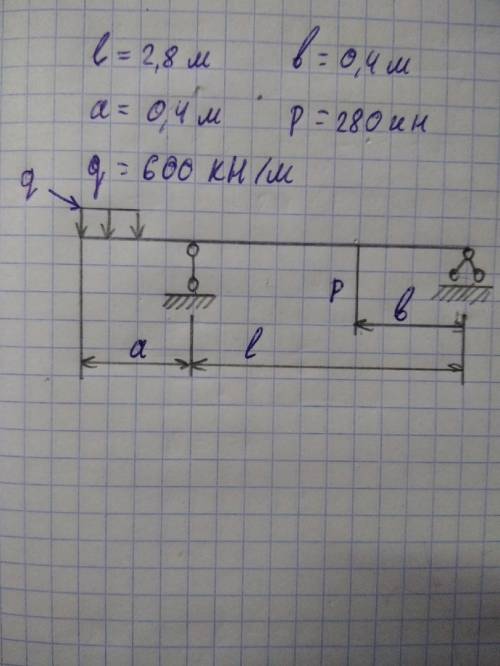 l = 2,8 м в = 0,4 м
a = 0,4 м P = 280 кН
q = 600 кН/м
q
P
в
a l